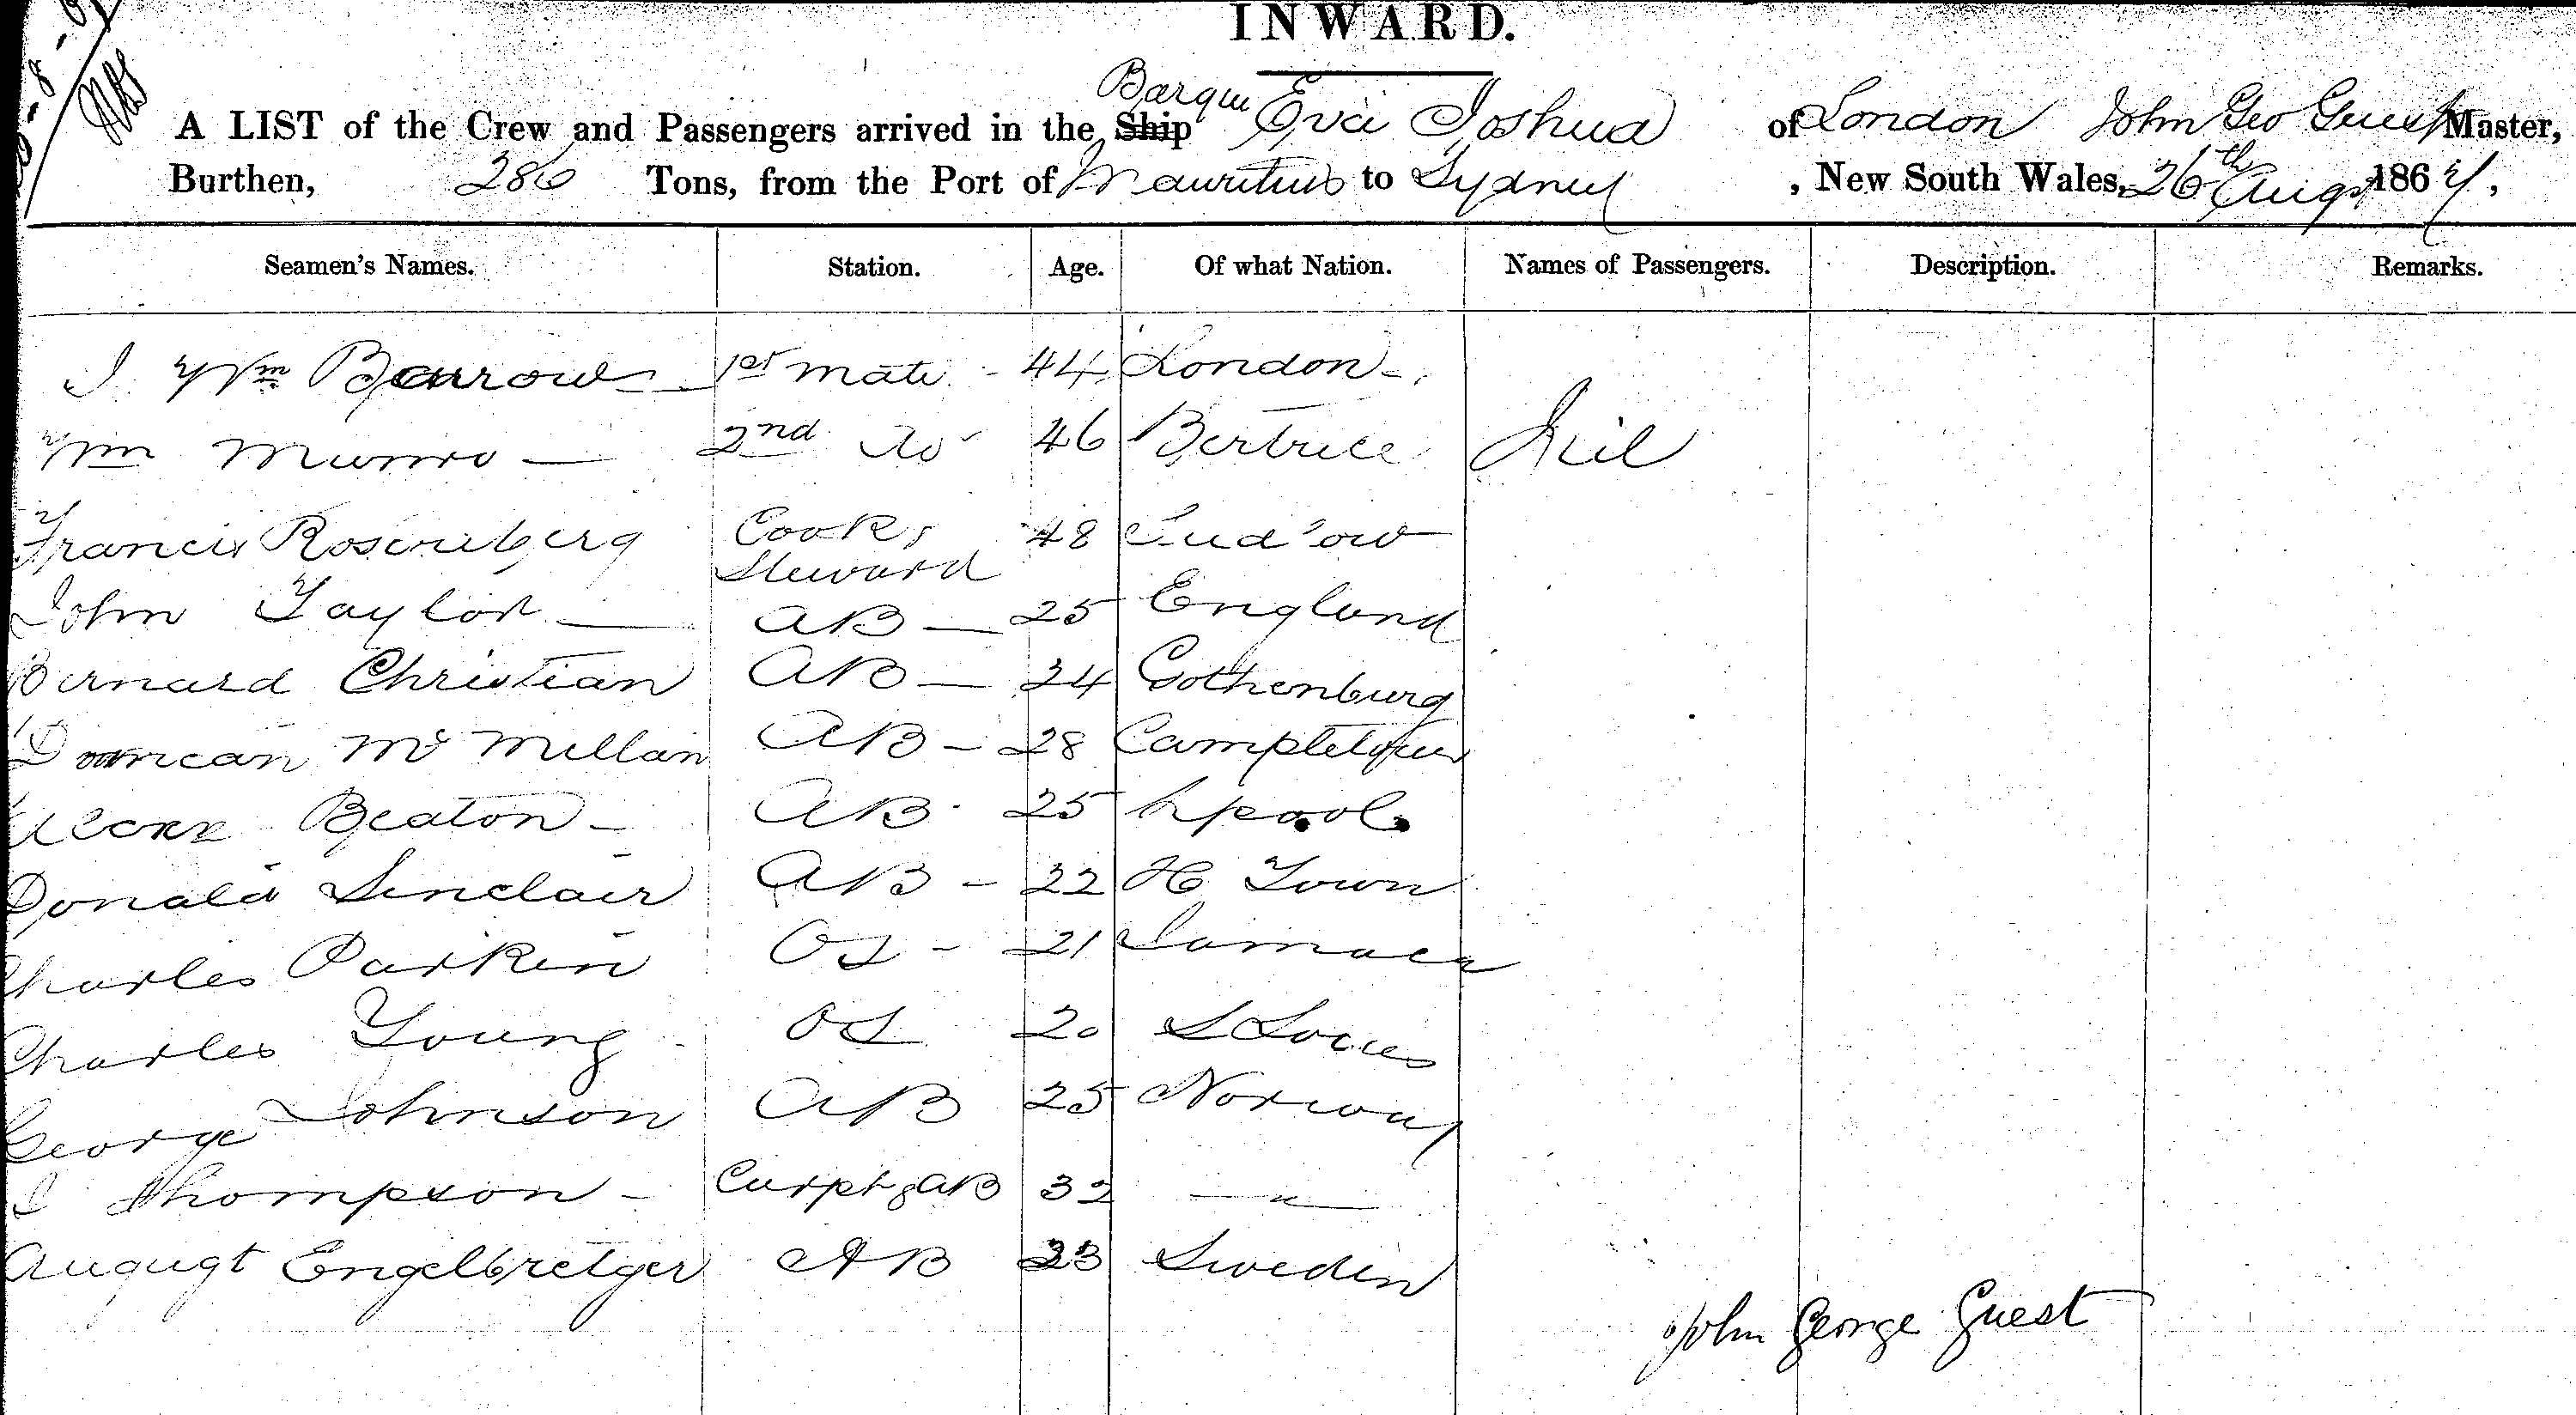 INWARD.
A LIST of the Crew and Passengers arrived in the Ship Barque Eva Joshua of London John Geo Guest Master,
Burthen, 286 Tons, from the Port of Mauritius to Sydney , New South Wales, 26th Augst 1867,
Seamen's Names. Station. Age. Of what Nation. Names of Passengers. Description. Remarks.
J Wm Barrow 1st mate - 44 London -
Wm Munro — 2nd do 46 Nil
Francis Rosenberg Cook, 48 Ludlow
Steward
John Taylor — AB — 25 England
Bernard Christian AB — 24 Gothenburg
Duncan Mc Millan AB - 28
Beaton - AB - 25 Lpool
Donald Sinclair AB - 22 H Town
Charles Parkin OS - 21 Jamaca
Charles Young OS 20 S Louis
George Johnson AB 25 Norway
J Thompson - Carpt & AB 32 — " —
August Engelbretger AB 23 Sweden
John George Guest